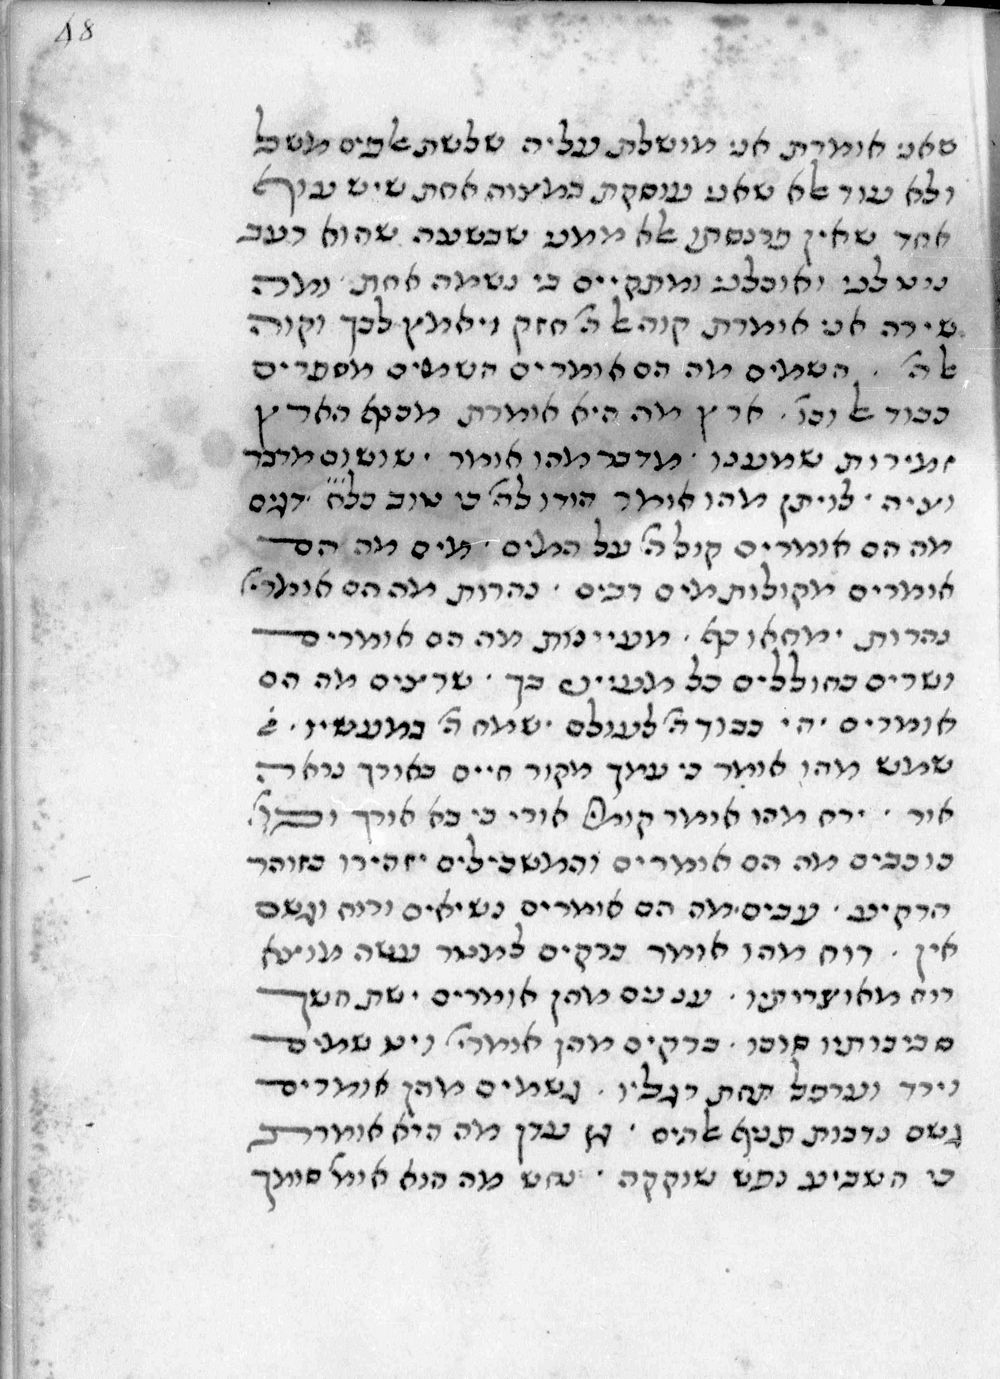 48
שאני אומרת אני מושלת עליה שלשת אלפים משל
ולא עוד אלא שאני עוסקת במצוה אחת שיש עוף
אחד שאין פרנסתו אלא ממני שבשעה שהוא רעב
נוטלני ואוכלני ומתקיים בי נשמה אחת ומה
שירה אני אומרת קוה אל ה' חזק ויאמץ לבך וקוה
אל ה' . השמים מה הם אומרים השמים מספרים
כבוד אל וכו' . ארץ מה היא אומרת מכנף הארץ
זמירות שמענו . מדבר מהו אומר . ישושום מדבר
וציה . לויתן מהו אומר הודו לה' כי טוב כלח . דגים
מה הם אומרים קול ה' על המים . מים מה הם
אומרים מקולות מים רבים . נהרות מה הם אומרי'
נהרות ימחאו כף . מעיינות מה הם אומרים
ושרים כחוללים כל מעייני בך . שרצים מה הם
אומרים יהי כבוד ה' לעולם ישמח ה' במעשיו .
שמש מהו אומר כי עמך מקור חיים באורך נראה
אור . ירח מהו אומר קומי אורי כי בא אורך וכו'
כוכבים מה הם אומרים והמשכילים יזהירו כזוהר
הרקיע . עבים מה הם אומרים נשיאים ורוח וגשם
אין . רוח מהו אומר ברקים למטר עשה מוצא
רוח מאוצרותיו . עננים מהן אומרים ישת חשך
סביבותיו סוכו . ברקים מהן אומרי' ויט שמים
וירד וערפל תחת רגליו . גשמים מהן אומרים
גשם נדבות תניף אלהים . גן עדן מה היא אומרת
כי השביע נפש שוקקה . נחש מה הוא אומ' סומך